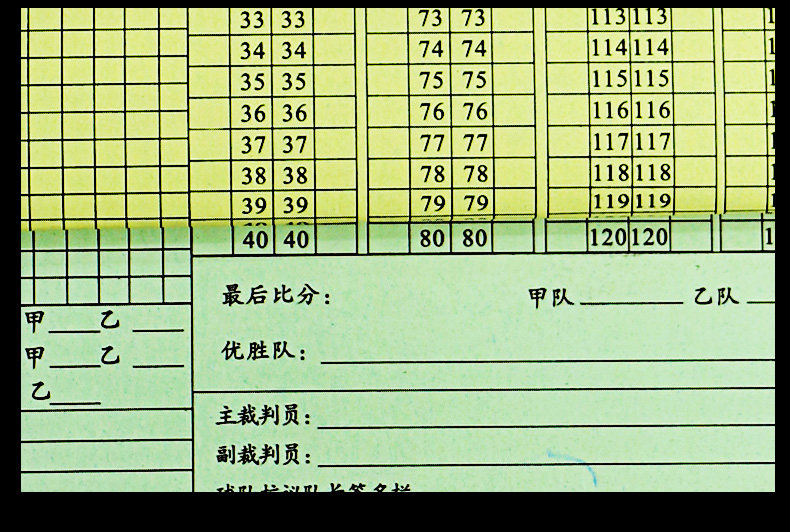 33 33 73 73 113 113
34 34 74 74 114 114
35 35 75 75 115 115
36 36 76 76 116 116
37 37 77 77 117 117
38 38 78 78 118 118
39 39 79 79 119 119
40 40 80 80 120 120
最后比分: 甲队 乙队
甲 乙
优胜队:
甲 乙
乙
主裁判员:
副裁判员:
球队抗议队长签名栏